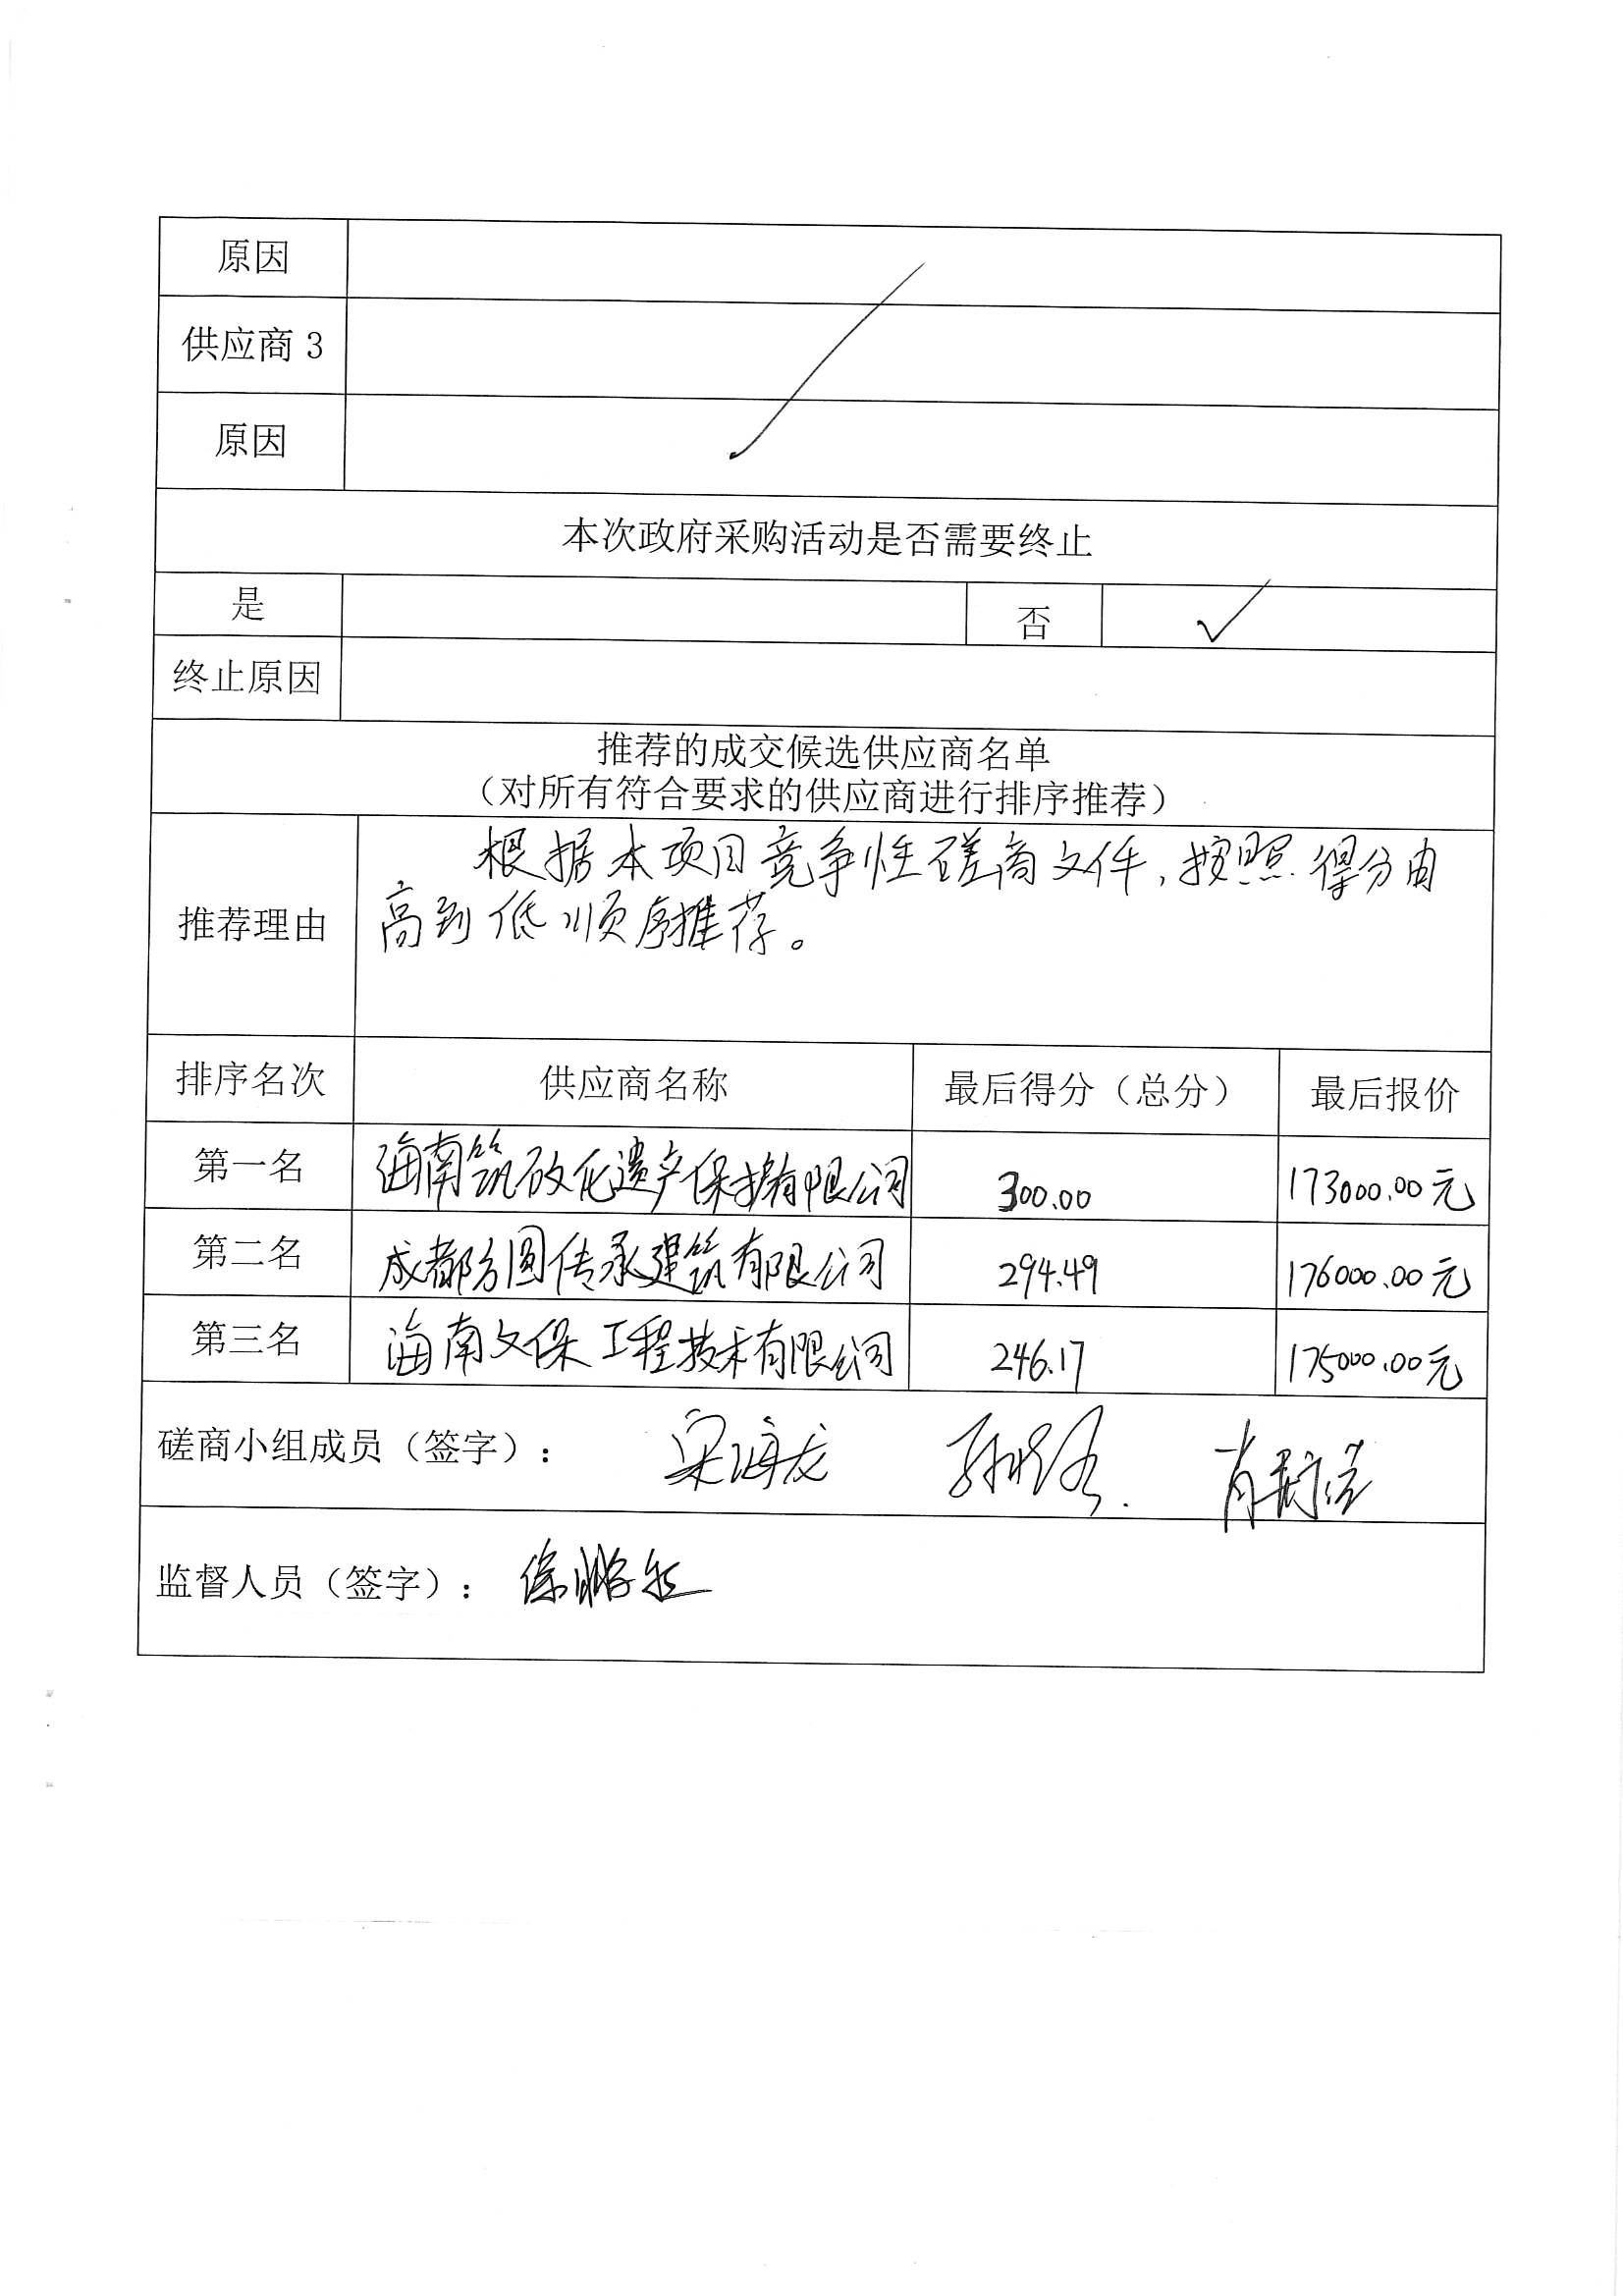 原因
供应商 3
原因
本次政府采购活动是否需要终止
是 否 ✓
终止原因
推荐的成交候选供应商名单
（对所有符合要求的供应商进行排序推荐）
推荐理由
根据本项目竞争性磋商文件，按照得分由
高到低顺序推荐。
排序名次 供应商名称 最后得分（总分） 最后报价
第一名 海南筑文化遗产保护有限公司 300.00 173000.00元
第二名 成都方圆传承建筑有限公司 294.49 176000.00元
第三名 海南文保工程技术有限公司 246.17 175000.00元
磋商小组成员（签字）：
监督人员（签字）：